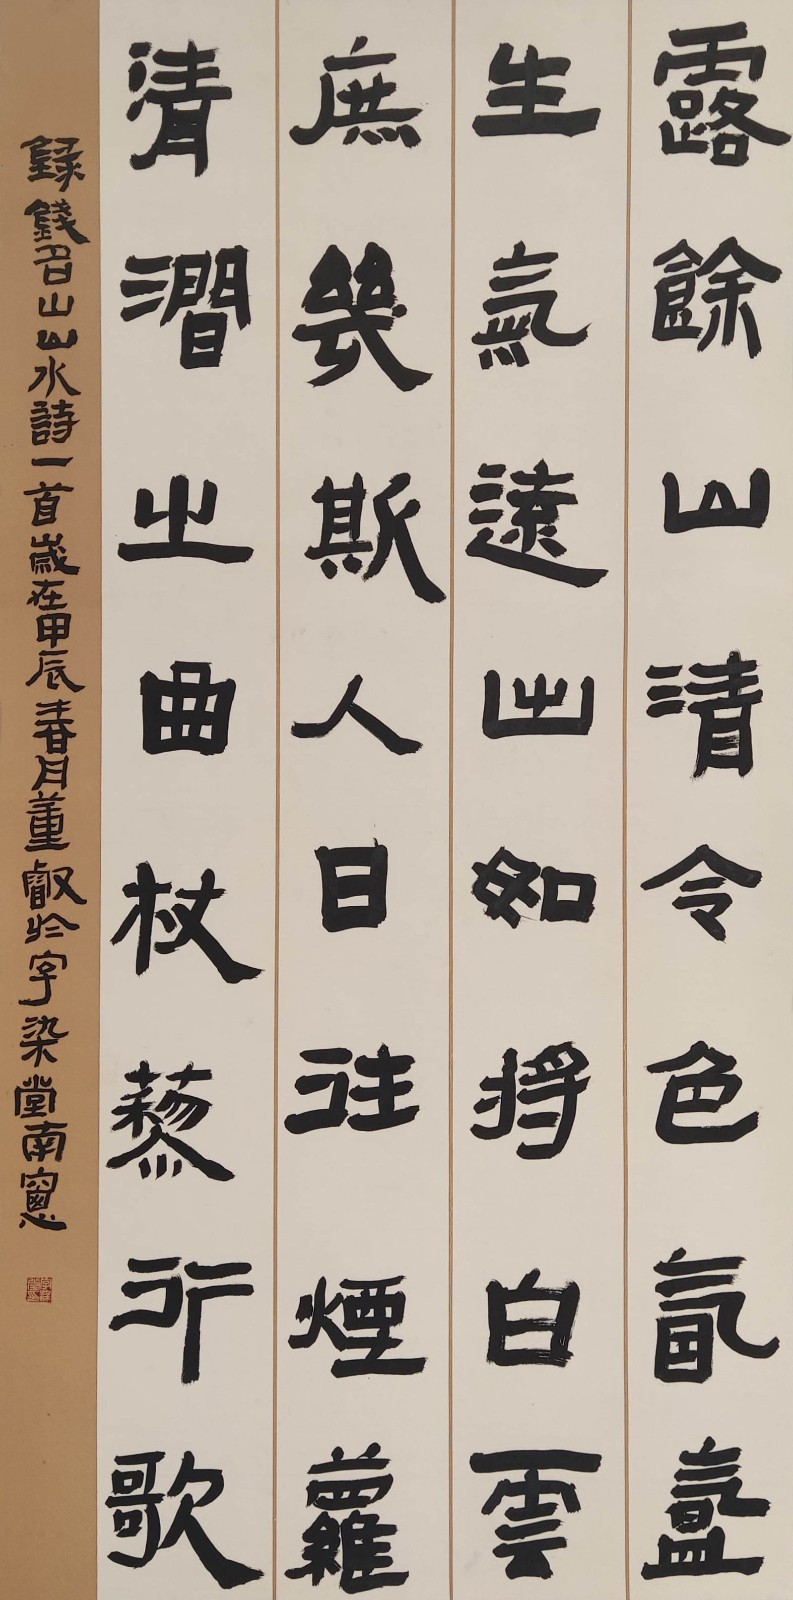 露餘山清令色氤氳
生氣遠出如將白雲
庶幾斯人目注煙蘿
清澗之曲杖藜行歌
錄錢名山山水詩一首歲在甲辰春月董叡於字染堂南窻